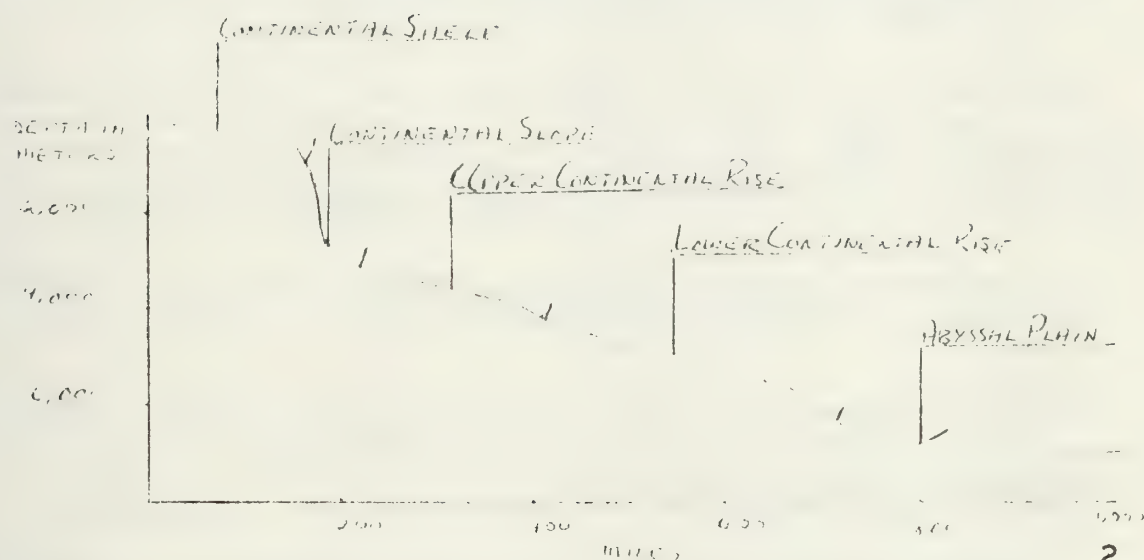 CONTINENTAL SHELF
DEPTH IN
METERS
CONTINENTAL SLOPE
UPPER CONTINENTAL RISE
2,000
LOWER CONTINENTAL RISE
4,000
ABYSSAL PLAIN
6,000
200 400 600 800 1,000
MILES
2